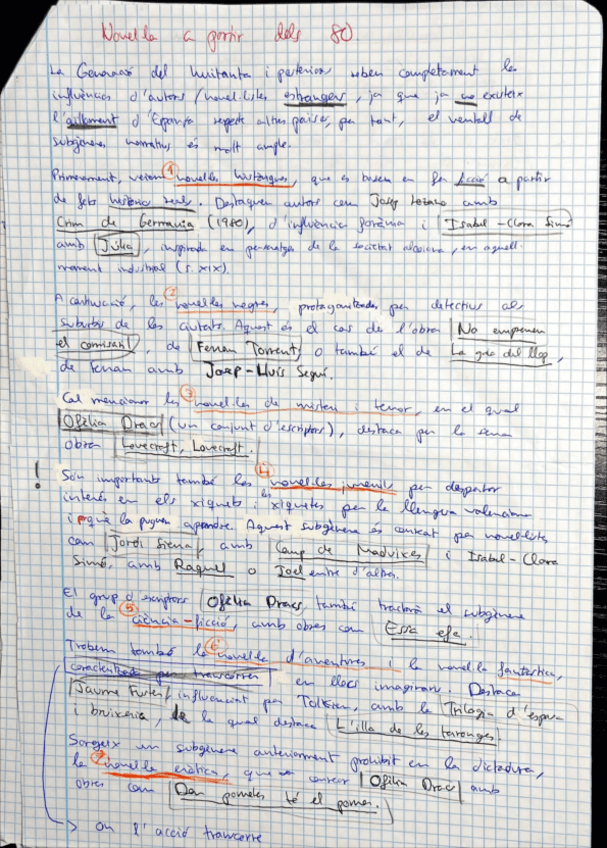 Novel·la a partir dels 80
La Generació del huitanta i posteriors reben completament les
influències d'autors/novel·listes estrangers, ja que ja no existeix
l'aïllament d'Espanya respecte altres països, per tant, el ventall de
subgèneres narratius és molt ample.
Primerament, veiem ① novel·les històriques, que es basen en fer ficció a partir
de fets històrics reals. Destaquen autors com Josep Lozano amb
Crim de Germania (1980), d'influència i Isabel-Clara Simó
amb Júlia, inspirada en personatges de la societat alcoiana, en aquell
moment industrial (s. XIX).
A continuació, les ② novel·les negres, protagonitzades per detectius als
suburbis de les ciutats. Aquest és el cas de l'obra No emprenyeu
el comissari, de Ferran Torrent, o també el de La del llop,
de amb Josep-Lluís Seguí.
Cal mencionar les ③ novel·les de misteri i terror, en el qual
Ofèlia Dracs (un conjunt d'escriptors), destaca per la seua
obra Lovecraft, Lovecraft.
! Són importants també les ④ novel·les juvenils per despertar
interés en els xiquets i les xiquetes per la llengua valenciana
i perquè la puguen aprendre. Aquest subgènere és conreat per novel·listes
com Jordi Sierra amb Camp de Maduixes i Isabel-Clara
Simó, amb Raquel o Joel entre d'altres.
El grup d'escriptors Ofèlia Dracs, també tractarà el subgènere
de la ⑤ ciència-ficció, amb obres com Essa efa.
Trobem també la ⑥ novel·la d'aventures i la novel·la fantàstica,
caracteritzada per transcórrer en llocs imaginaris. Destaca
Jaume Fuster, influenciat per Tolkien, amb la Trilogia d'espasa
i bruixeria, de la qual destaca L'illa de les taronges.
Sorgeix un subgènere anteriorment prohibit en la dictadura,
la ⑦ novel·la eròtica, que va conrear Ofèlia Dracs amb
obres com Deu pometes té el pomer.
> on l'acció transcorre